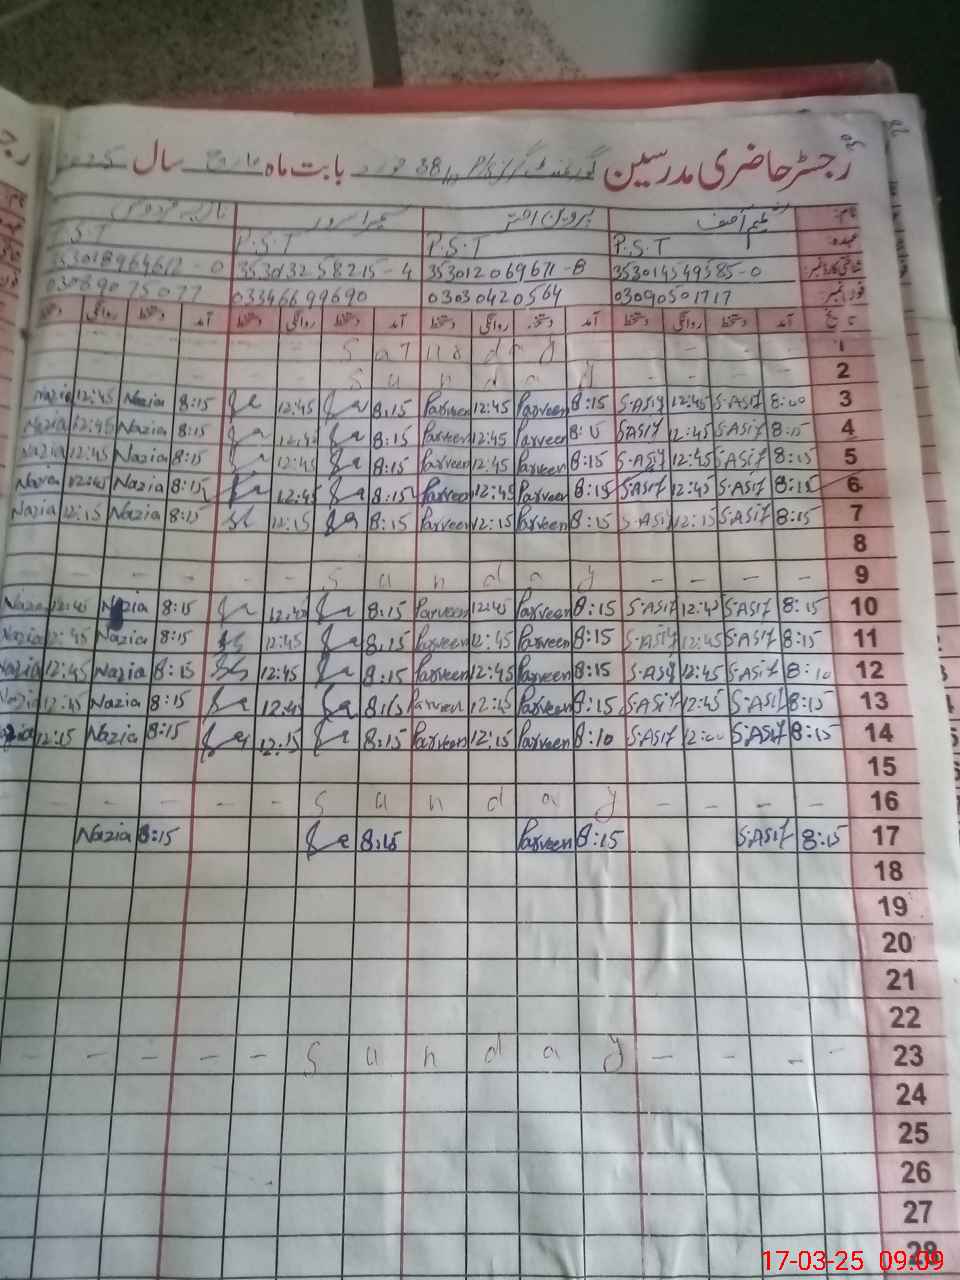 رجسٹر حاضری مدرسین گورنمنٹ گرلز P/S 38 بابت ماہ مارچ سال
نام: آصف پروین اختر سرور
عہدہ: P.S.T P.S.T P.S.T S.T
شناختی کارڈ نمبر: 353014549585-0 353012069671-8 353013258215-4 353018964612-0
فون نمبر: 03090501717 03030420564 03346699690 03089075077
تاریخ آمد دستخط روانگی دستخط آمد دستخط روانگی دستخط آمد دستخط روانگی دستخط آمد دستخط روانگی دستخط
1 Saturday
2 Sunday
3 8:00 S.ASif 12:45 S.ASif 8:15 Parveen 12:45 Parveen 8:15 12:45 8:15 Nazia 12:45 Nazia
4 8:15 S.ASif 12:45 S.ASif 8:15 Parveen 12:45 Parveen 8:15 12:45 8:15 Nazia 12:45 Nazia
5 8:15 S.ASif 12:45 S.ASif 8:15 Parveen 12:45 Parveen 8:15 12:45 8:15 Nazia 12:45 Nazia
6 8:15 S.ASif 12:45 S.ASif 8:15 Parveen 12:45 Parveen 8:15 12:45 8:15 Nazia 12:45 Nazia
7 8:15 S.ASif 12:15 S.ASif 8:15 Parveen 12:15 Parveen 8:15 12:15 8:15 Nazia 12:15 Nazia
8
9 Sunday
10 8:15 S.ASif 12:45 S.ASif 8:15 Parveen 12:45 Parveen 8:15 12:45 8:15 Nazia 12:45 Nazia
11 8:15 S.ASif 12:45 S.ASif 8:15 Parveen 12:45 Parveen 8:15 12:45 8:15 Nazia 12:45 Nazia
12 8:10 S.ASif 12:45 S.ASif 8:15 Parveen 12:45 Parveen 8:15 12:45 8:15 Nazia 12:45 Nazia
13 8:15 S.ASif 12:45 S.ASif 8:15 Parveen 12:45 Parveen 8:15 12:45 8:15 Nazia 12:45 Nazia
14 8:15 S.ASif 12:00 S.ASif 8:10 Parveen 12:15 Parveen 8:15 12:15 8:15 Nazia 12:15
15
16 Sunday
17 8:15 S.ASif 8:15 Parveen 8:15 8:15 Nazia
18
19
20
21
22
23 Sunday
24
25
26
27
28
17-03-25 09:09